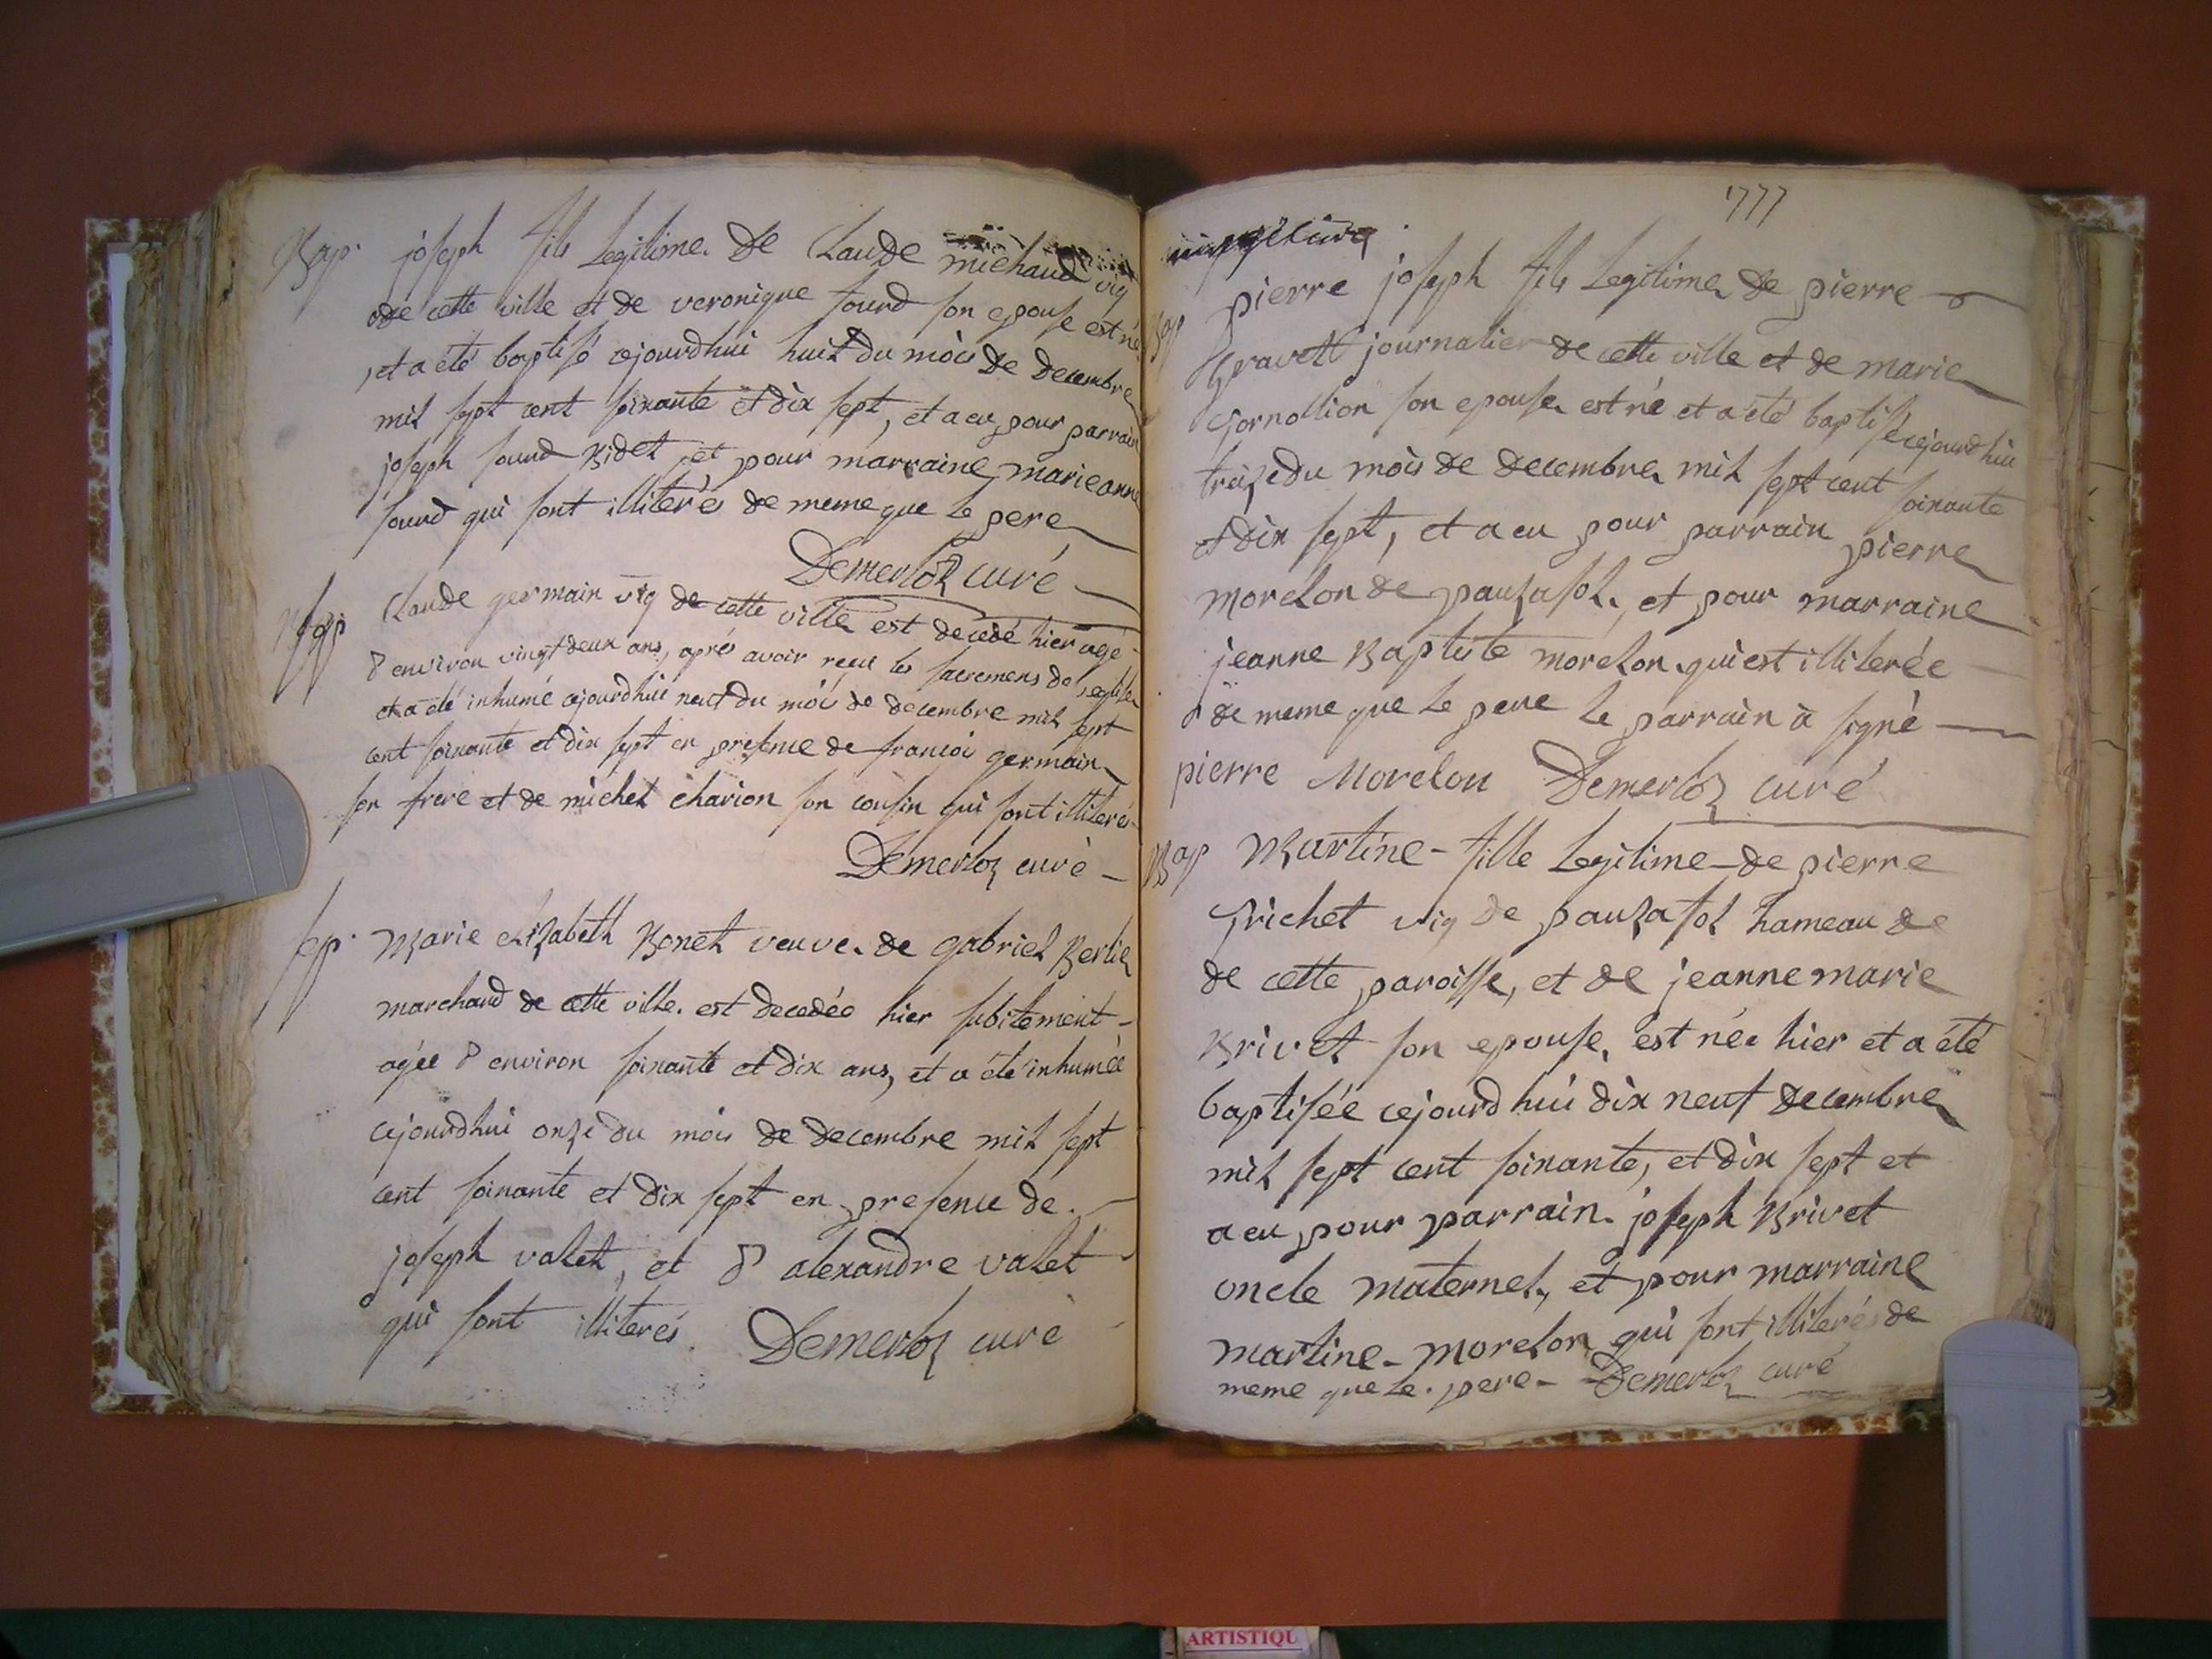 Bap. joseph fils Legitime de Claude michaud vig
de cette ville et de veronique sourd son epouse est né
et a été baptisé cejourdhui huit du mois de decembre
mil sept cent soixante et dix sept, et a eu pour parrain
joseph sourd Bidet et pour marraine marieanne
sourd qui sont illiterés de meme que le pere
Demerloz curé
Sep Claude germain vig de cette ville est decedé hier agé
d environ vingt deux ans, aprés avoir reçu les sacremens de l'eglise
et a été inhumé cejourdhui neuf du mois de decembre mil sept
cent soixante et dix sept en presence de francois germain
son frere et de michel charion son cousin qui sont illiterés
Demerloz curé
sep. Marie elizabeth Bonet veuve de gabriel Berlie
marchand de cette ville est decedée hier subitement
agée d environ soixante et dix ans, et a été inhumée
cejourdhui onze du mois de decembre mil sept
cent soixante et dix sept en presence de
joseph valet, et d alexandre valet
qui sont illiterés. Demerloz curé
1777
Bap pierre joseph fils Legitime de pierre
gravett journalier de cette ville et de marie
Gornollion son epouse est né et a été baptisé cejourdhui
treize du mois de decembre mil sept cent soixante
et dix sept, et a eu pour parrain pierre
morelon de pauzasol, et pour marraine
jeanne Baptiste morelon qui est illiterée
de meme que le pere le parrain à signé
pierre Morelon Demerloz curé
Bap Martine fille Legitime de pierre
Grichet vig de pauzasol hameau de
de cette paroisse, et de jeanne marie
Brivet son epouse, est née hier et a été
baptisée cejourd hui dix neuf decembre
mil sept cent soixante, et dix sept et
a eu pour parrain joseph Brivet
oncle maternel, et pour marraine
martine morelon qui sont illiterés de
meme que le pere Demerloz curé
ARTISTIQU